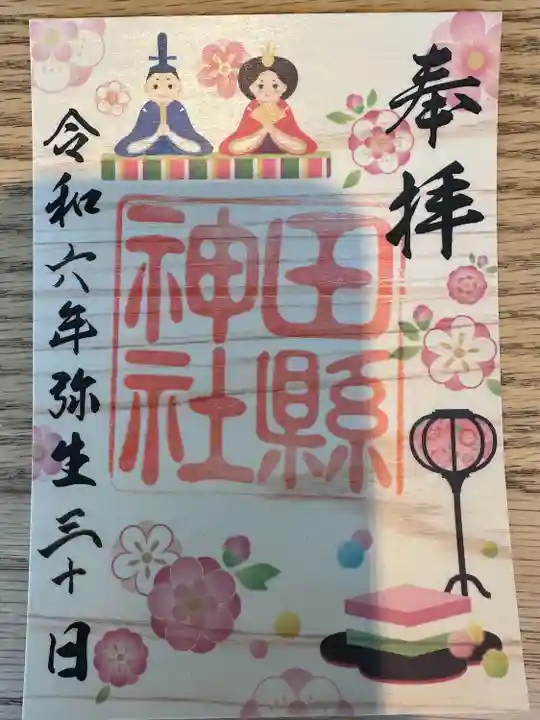 奉拝
田縣
神社
令和六年弥生三十日